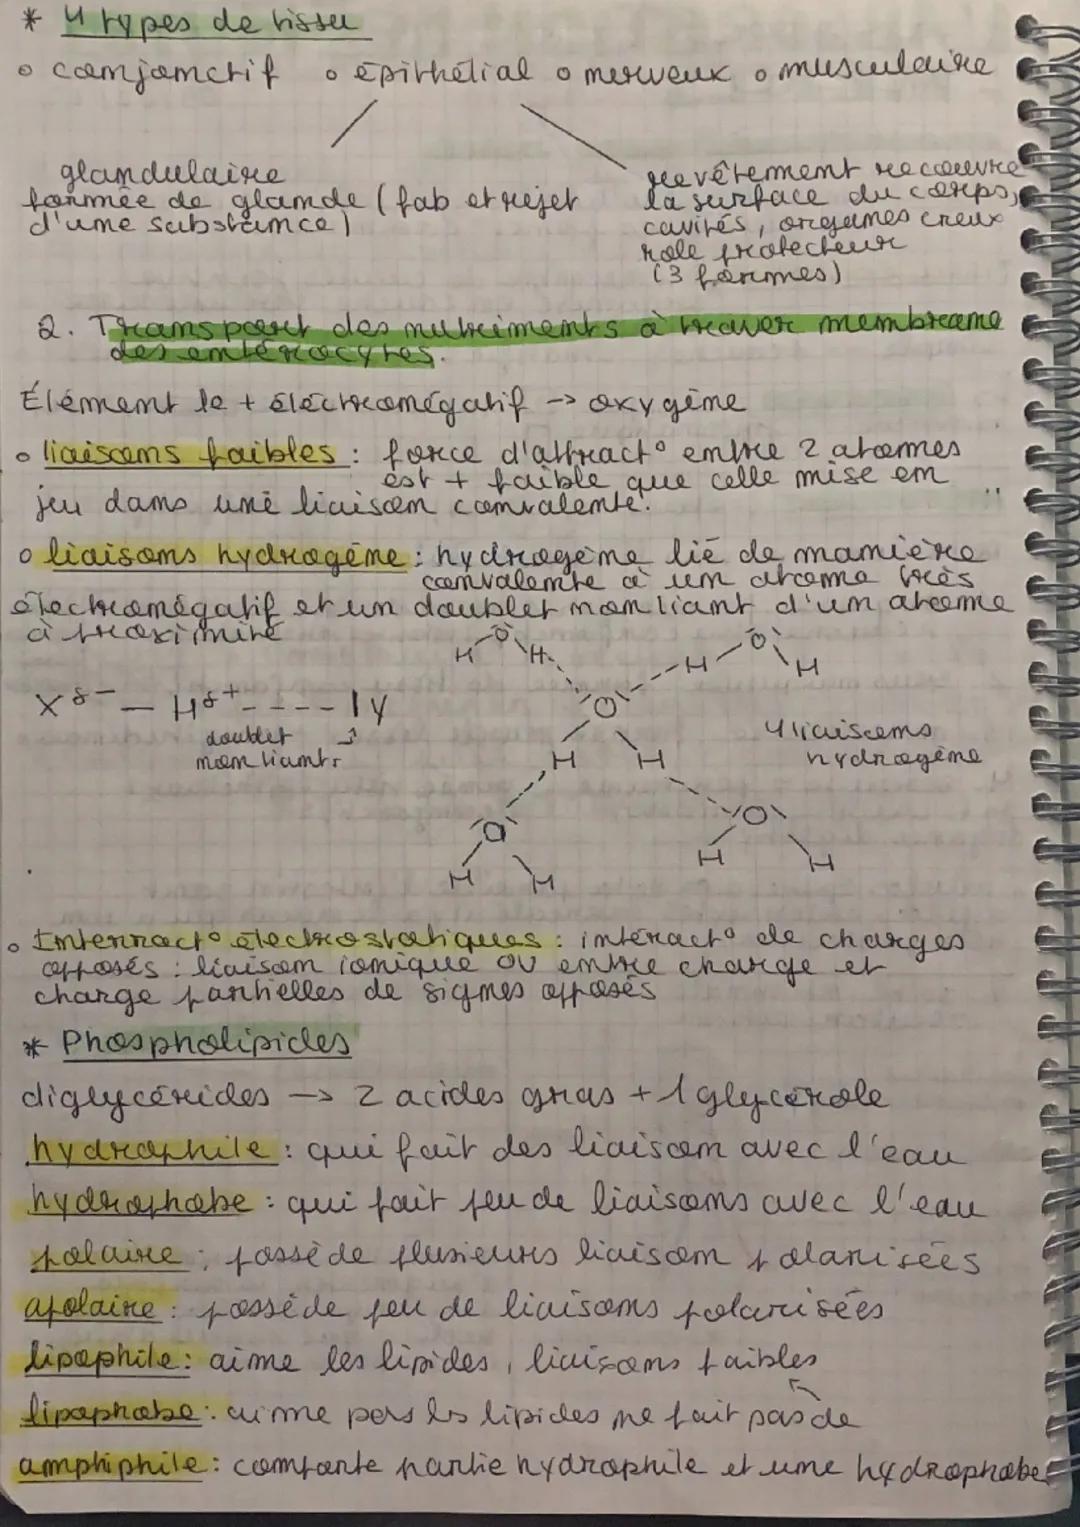 * 4 types de tissu
o conjonctif o épithélial o nerveux o musculaire
glandulaire
formée de glande (fab et rejet
d'une substance)
revêtement recouvre
la surface du corps,
cavités, organes creux
role protecteur
(3 formes)
2. Transport des nutriments à traver membrane
des entérocytes.
Élément le + électronégatif -> oxygène
o liaisons faibles : force d'attract° entre 2 atomes
est + faible que celle mise en
jeu dans une liaison convalente.
o liaisons hydrogène : hydrogène lié de manière
convalente à un atome très
électronégatif et un doublet non liant d'un atome
à proximité
H O H
H O H
X δ- — H δ+ ---- I Y
doublet
non liant
O
H H
4 liaisons
hydrogène
O O
H H
H H
o Interract° électrostatiques : intéract° de charges
opposés : liaison ionique OU entre charge et
charge partielles de signes opposés
* Phospholipides
diglycérides -> 2 acides gras + 1 glycérole
hydrophile : qui fait des liaison avec l'eau
hydrophobe : qui fait peu de liaisons avec l'eau
polaire : possède plusieurs liaison polarisées
apolaire : possède peu de liaisons polarisées
lipophile : aime les lipides, liaisons faibles
lipophobe : aime pas les lipides ne fait pas de
amphiphile : comporte partie hydrophile et une hydrophobe